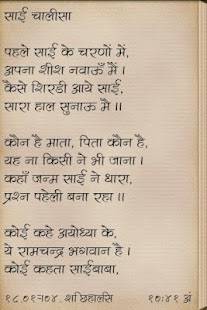 साईं चालीसा
पहले साई के चरणों में,
अपना शीश नवाऊँ मैं।
कैसे शिरडी आये साई,
सारा हाल सुनाऊ मैं॥
कौन है माता, पिता कौन है,
यह ना किसी ने भी जाना।
कहाँ जन्म साई ने धारा,
प्रश्न पहेली बना रहा॥
कोई कहे अयोध्या के,
ये रामचन्द्र भगवान है।
कोई कहता साईबाबा,
१०:४१